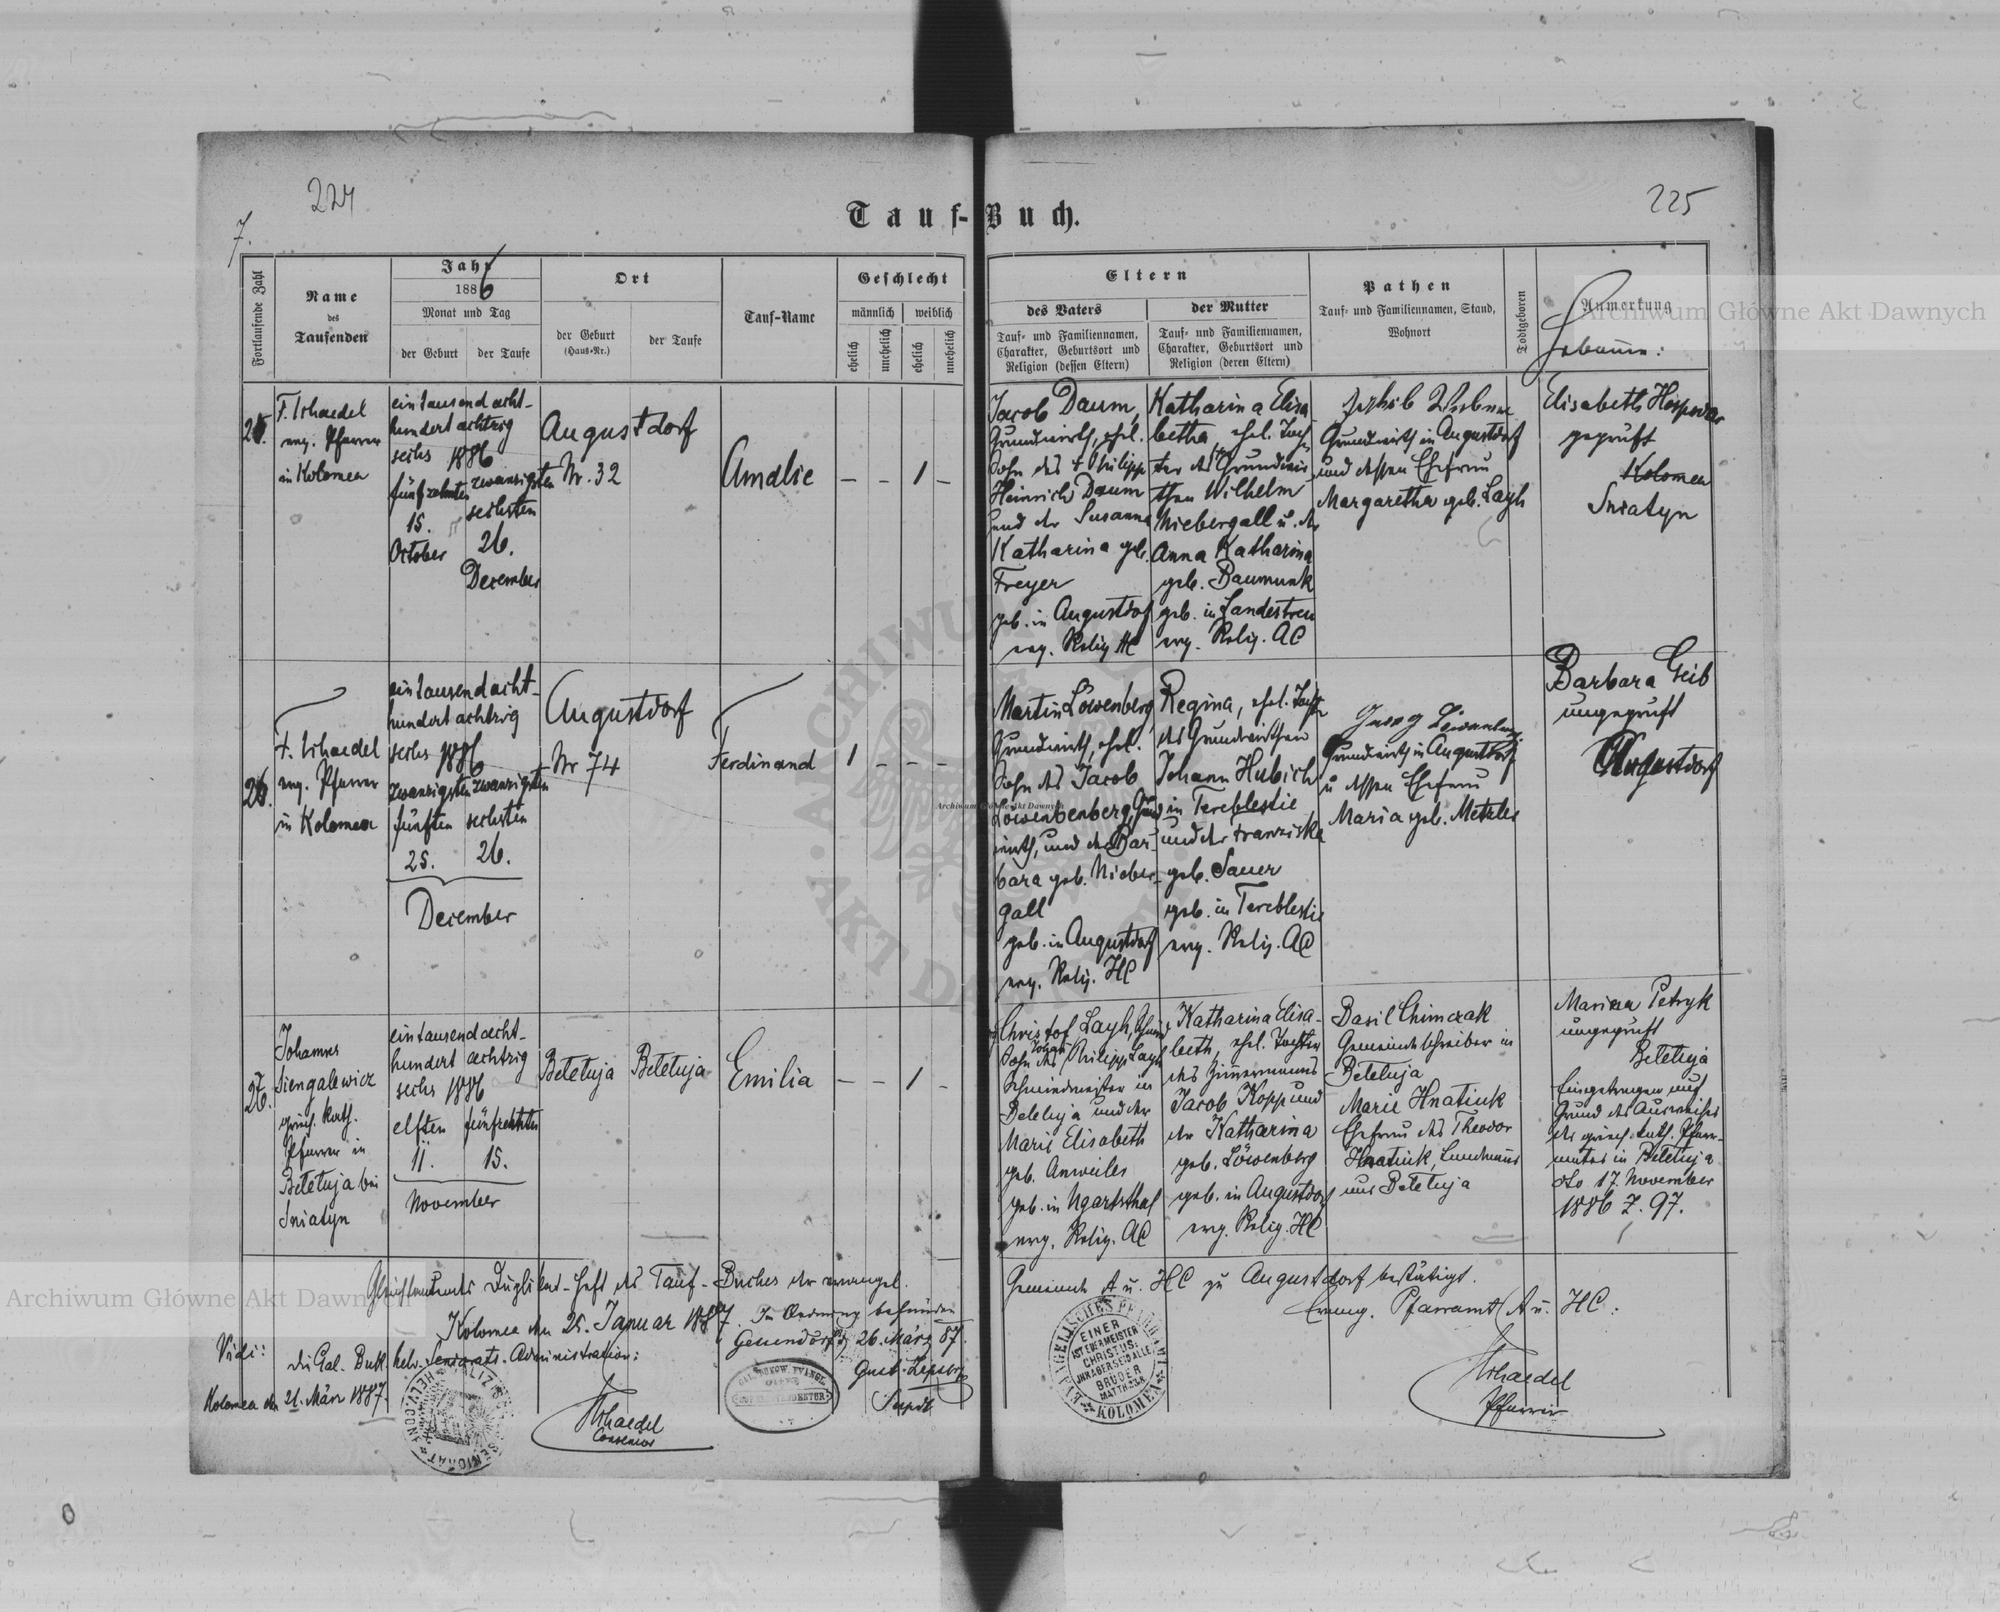 224
225
7.
Tauf-Buch.
Fortlaufende Zahl
Name
des
Taufenden
Jahr
1886
Monat und Tag
der Geburt
der Taufe
Ort
der Geburt
(Haus-Nr.)
der Taufe
Tauf-Name
Geschlecht
männlich
weiblich
ehelich
unehelich
ehelich
unehelich
Eltern
des Vaters
Tauf- und Familiennamen,
Charakter, Geburtsort und
Religion (dessen Eltern)
der Mutter
Tauf- und Familiennamen,
Charakter, Geburtsort und
Religion (deren Eltern)
Pathen
Tauf- und Familiennamen, Stand,
Wohnort
Todtgeboren
Anmerkung
Hebamme:
evg. Pfarrer
in Kolomea
eintausend acht-
hundert achtzig
sechs 1886
fünfzehnten
15.
October
zwanzigsten
sechsten
26.
December
Augustdorf
Nr. 32
Amalie
— — 1 —
Jacob Daum,
Grundwirth, ehel.
Sohn des † Philipp
Heinrich Daum
und der Susanna
Katharina geb.
Freyer
geb. in Augustdorf
evg. Relig. HC
Katharina Elisa-
betha, ehel. Toch-
ter des Grundwir-
then Wilhelm
Niebergall u. der
Anna Katharina
geb. Baumunk
geb. in Landestreu
evg. Relig. AC
Grundwirth in Augustdorf
und dessen Ehefrau
Margaretha geb. Layh
Elisabeth
geprüft
Kolomea
Sniatyn
evg. Pfarrer
in Kolomea
eintausend acht-
hundert achtzig
sechs 1886
zwanzigsten
fünften
25.
zwanzigsten
sechsten
26.
December
Augustdorf
Nr 74
Ferdinand
1 - - -
Martin Löwenberg,
Grundwirth, ehel.
Sohn des Jacob
Löwenbenberg, Grund-
wirth, und der Bar-
bara geb. Nieber-
gall
geb. in Augustdorf
evg. Relig. HC
Regina, ehel. Tochter
des Grundwirthen
Johann Hubich
in Tereblestie
und der Franziska
geb. Sauer
geb. in Tereblestie
evg. Relig. AC
Grundwirth in Augustdorf
u dessen Ehefrau
Maria geb. Metzler
Barbara Geib
ungeprüft
Augustdorf
Johannes
Siengalewicz
griech. kath.
Pfarrer in
Beletuja bei
Sniatyn
eintausend acht-
hundert achtzig
sechs 1886
elften
11.
fünfzehnten
15.
November
Beletuja
Beletuja
Emilia
— — 1 -
Christof Layh,
Sohn des Johann Philipp Layh
Schmiedmeister in
Beletuja und der
Marie Elisabeth
geb. Anweiler
geb. in Ugartsthal
evg. Relig. AC
Katharina Elisa-
beth, ehel. Tochter
des Zimmermanns
Jacob Kopp und
der Katharina
geb. Löwenberg
geb. in Augustdorf
evg. Relig. HC
Basil Chimczak
Gemeindeschreiber in
Beletuja
Marie Hnatiuk
Ehefrau des Theodor
Hnatiuk, Landmann
aus Beletuja
Petryk
ungeprüft
Beletuja
Eingetragen auf
Grund des Ausweises
des griech. kath. Pfarr-
amtes in Beletuja
dto 17. November
1886 Z. 97.
Gleichlautendes Duplikat-Heft des Tauf-Buches der evangel.
Gemeinde A u. HC zu Augustdorf bestätigt.
Kolomea den 25. Januar 1887.
Evang. Pfarramt A u. HC:
Pfarrer
In Ordnung befunden
26. März 87.
Supdt
Vidi:
die Gal. Buk. helv. Seniorats-Administration:
Kolomea den 21. März 1887.
Consenior
EVANGELISCHES PFARRAMT
KOLOMEA
EINER
IST EUER MEISTER
CHRISTUS,
IHR ABER SEID ALLE
BRÜDER
MATTH.23.8.
Archiwum Główne Akt Dawnych
Archiwum Główne Akt Dawnych
Archiwum Główne Akt Dawnych